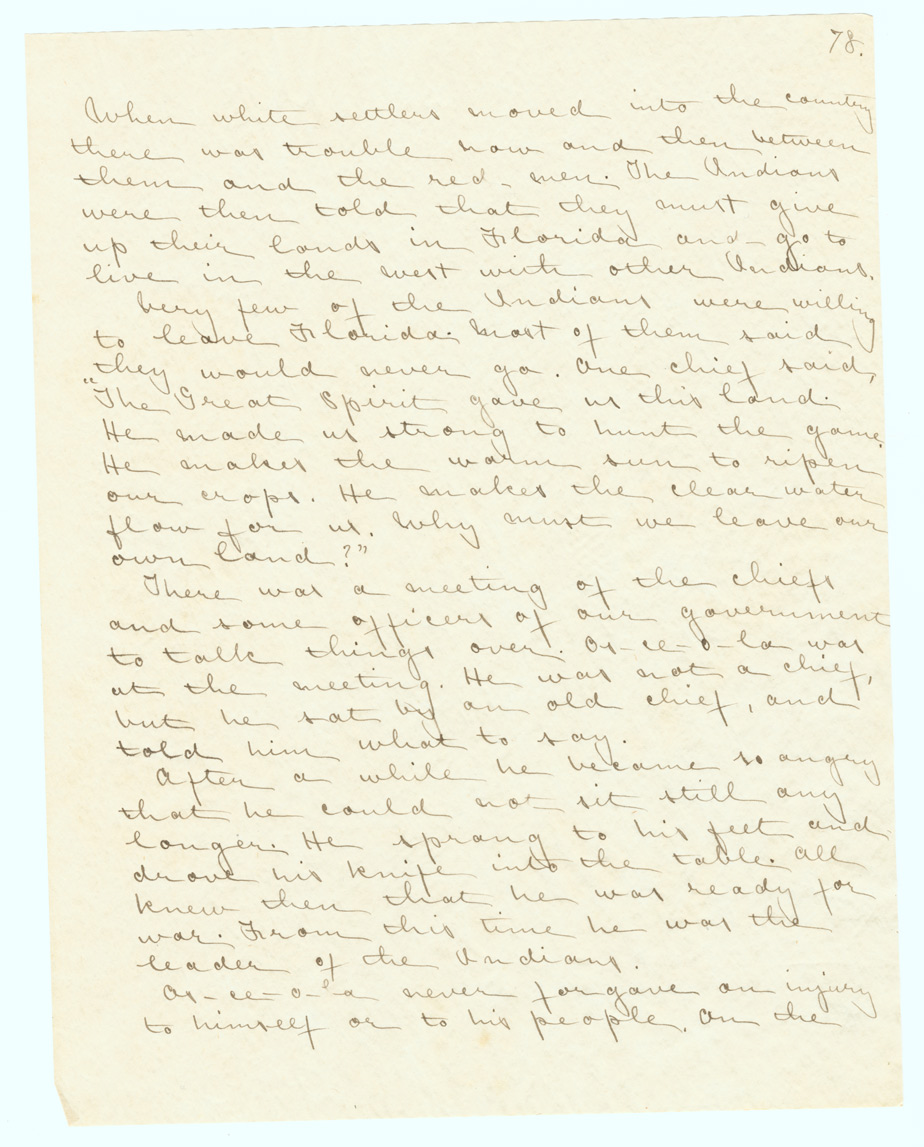 78.
When white settlers moved into the country
there was trouble now and then between
them and the red-men. The Indians
were then told that they must give
up their lands in Florida and go to
live in the west with other Indians.
Very few of the Indians were willing
to leave Florida. Most of them said
they would never go. One chief said,
"The Great Spirit gave us this land.
He made us strong to hunt the game.
He makes the warm sun to ripen
our crops. He makes the clear water
flow for us. Why must we leave our
own land?"
There was a meeting of the chiefs
and some officers of our government
to talk things over. Os-ce-o-la was
at the meeting. He was not a chief,
but he sat by an old chief, and
told him what to say.
After a while he became so angry
that he could not sit still any
longer. He sprang to his feet and
drove his knife into the table. All
knew then that he was ready for
war. From this time he was the
leader of the Indians.
Os-ce-o-la never forgave an injury
to himself or to his people. On the